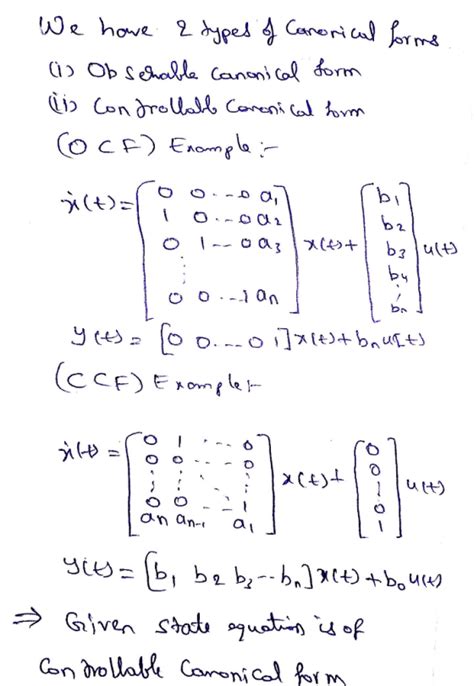 We have 2 types of Canonical forms
(i) Observable canonical form
(ii) Controllable Canonical form
(OCF) Example :-
ẋ(t) = [0 0...0 a₁
1 0...0 a₂
0 1...0 a₃
⋮
0 0...1 aₙ] x(t) + [b₁
b₂
b₃
b₄
⋮
bₙ] u(t)
y(t) = [0 0...0 1] x(t) + bₙ u(t)
(CCF) Example :-
ẋ(t) = [0 1 ... 0
0 0 ... 0
⋮ ⋮ ⋮
0 0 ... 1
aₙ aₙ₋₁ a₁] x(t) + [0
0
⋮
0
1] u(t)
y(t) = [b₁ b₂ b₃...bₙ] x(t) + b₀ u(t)
⇒ Given state equation is of
Controllable Canonical form